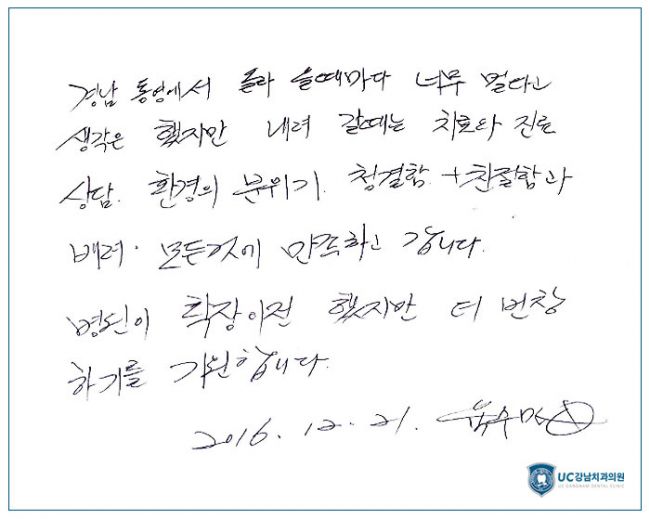 경남 통영에서 올라 올때마다 너무 멀다고
생각은 했지만 내려 갈때는 치료와 진료
상담. 환경의 분위기. 청결함 + 친절함과
배려. 모든것에 만족하고 갑니다.
병원이 확장이전 했지만 더 번창
하기를 기원합니다.
2016. 12. 21.
UC강남치과의원
UC GANGNAM DENTAL CLINIC